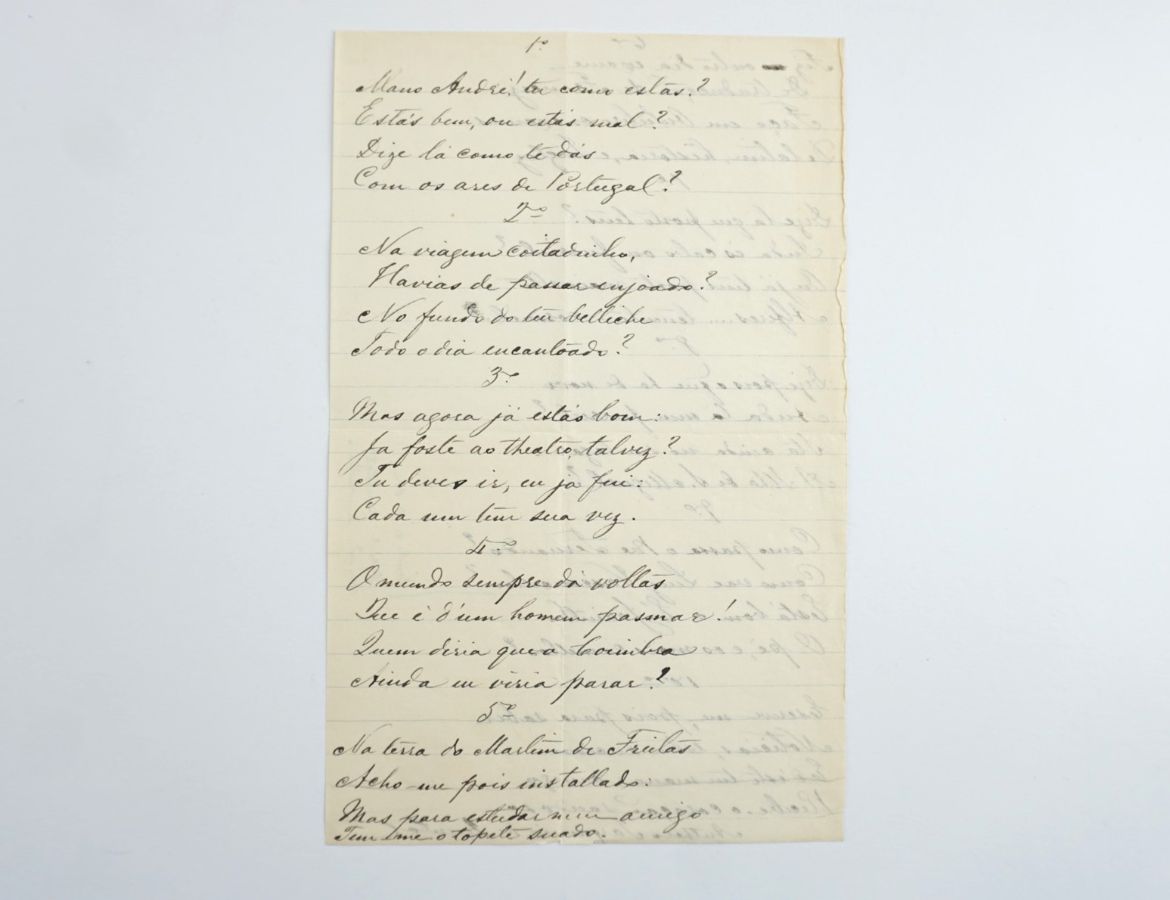 1º
Mano André! tu como estás?
Estás bem, ou estás mal?
Dize lá como te dás
Com os ares de Portugal?
2º
Na viagem coitadinho,
Havias de passar enjoado?
No fundo do teu belliche
Todo o dia encantoado?
3º
Mas agora já estás bom:
Ja foste ao theatro, talvez?
Tu deves ir, eu já fui:
Cada um tem sua vez.
4º
O mundo sempre dá voltas
Que é d'um homem pasmar!
Quem diria que a Coimbra
Ainda eu viria parar?
5º
Na terra do Martim de Freitas
Acho me pois installado:
Mas para estudar meu amigo
Tem me o topete suado.